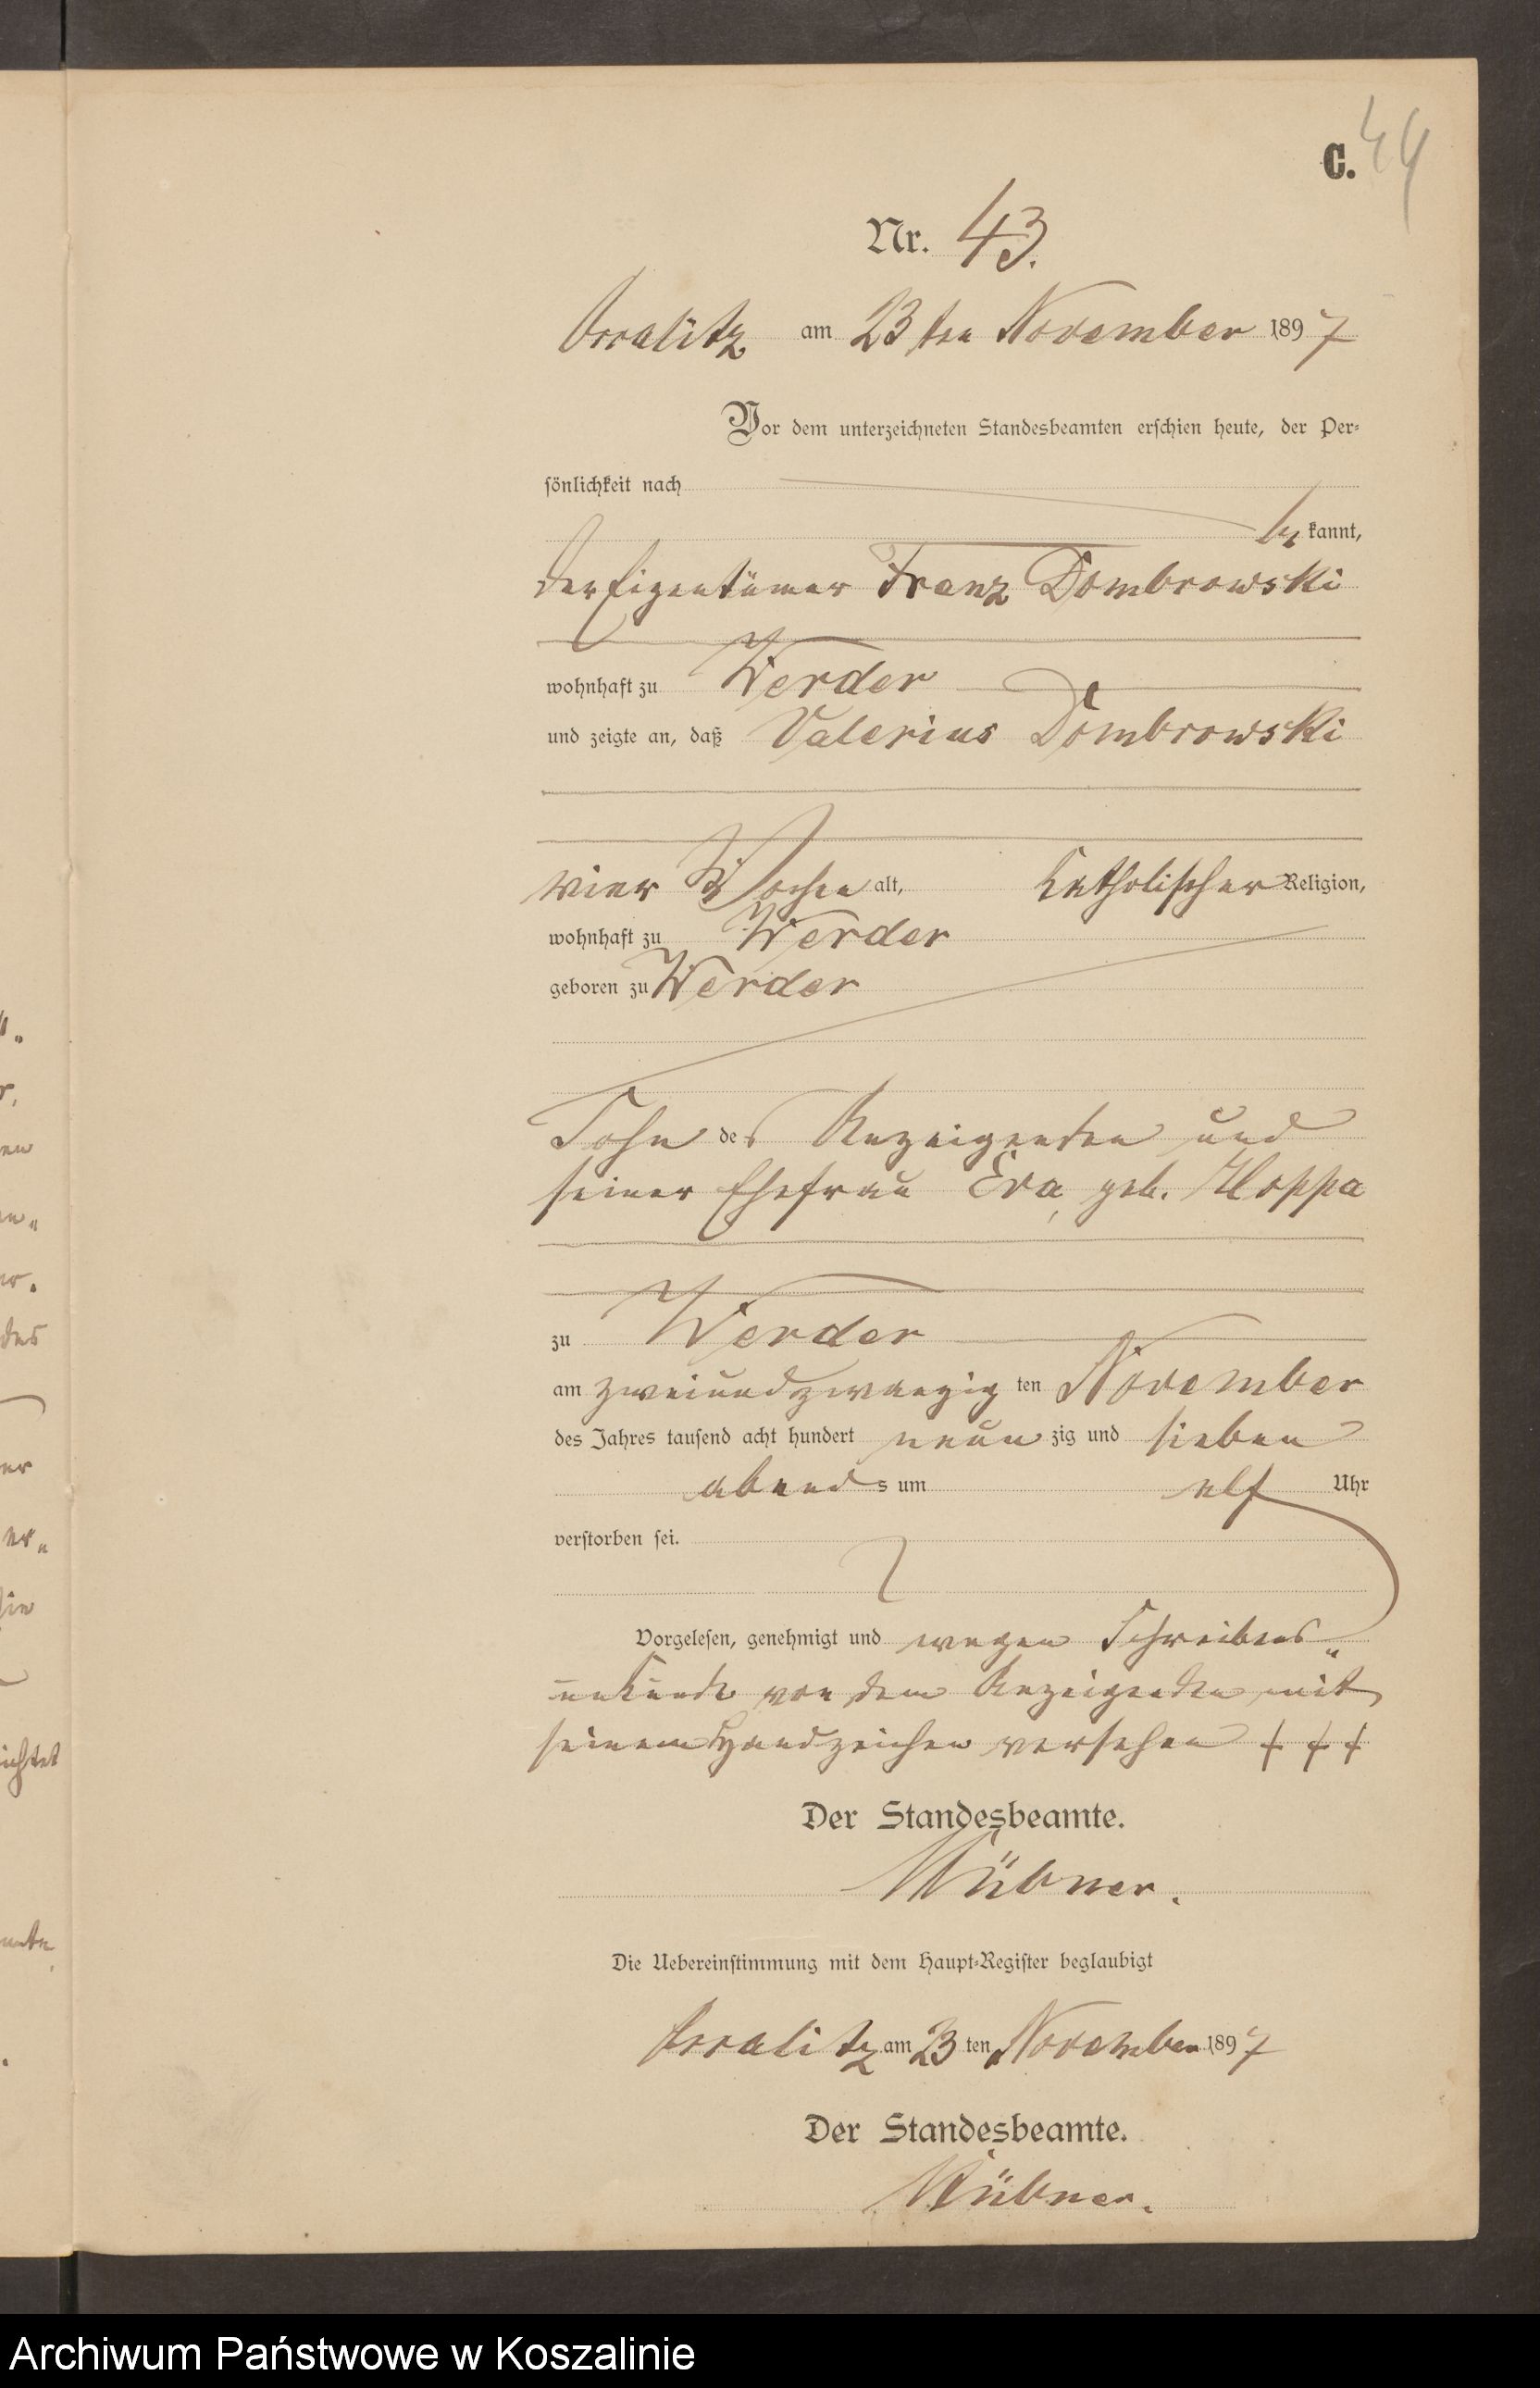 C. 44
Nr. 43.
am 23ten November 1897
Vor dem unterzeichneten Standesbeamten erschien heute, der Per-
sönlichkeit nach
be kannt,
der Eigentümer Franz Dombrowski
wohnhaft zu Werder
und zeigte an, daß Valerius Dombrowski
vier Wochen alt, katholischer Religion,
wohnhaft zu Werder
geboren zu Werder
Sohn des Anzeigenden und
seiner Ehefrau Eva, geb. Hoppa
zu Werder
am zweiundzwanzig ten November
des Jahres tausend acht hundert neun zig und sieben
abends um elf Uhr
verstorben sei.
Vorgelesen, genehmigt und wegen Schreibens„
unkunde von dem Anzeigenden mit
seinem Handzeichen versehen + + +
Der Standesbeamte.
Die Uebereinstimmung mit dem Haupt-Register beglaubigt
am 23 ten November 1897
Der Standesbeamte.
Archiwum Państwowe w Koszalinie